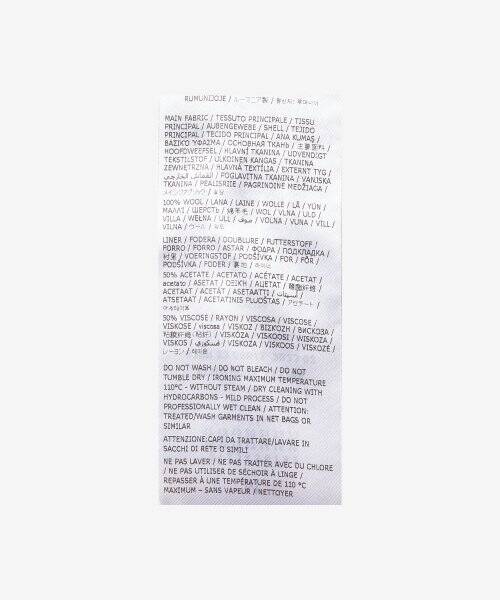 RUMUNIJOJE / ルーマニア製 / 원산지: 루마니아
MAIN FABRIC / TESSUTO PRINCIPALE / TISSU
PRINCIPAL / AUBENGEWEBE / SHELL / TEJIDO
PRINCIPAL / TECIDO PRINCIPAL / ANA KUMAŞ /
ΒΑΣΙΚΟ ΥΦΑΣΜΑ / ОСНОВНАЯ ТКАНЬ / 主要面料 /
HOOFDWEEFSEL / HLAVNÍ TKANINA / UDVENDIGT
TEKSTILSTOF / ULKOINEN KANGAS / TKANINA
ZEWNĘTRZNA / HLAVNÁ TEXTÍLIA / EXTERNT TYG /
القماش الخارجي / FOGLAVITNA TKANINA / VANJSKA
TKANINA / PEALISRIIE / PAGRINDINĖ MEDŽIAGA /
100% WOOL / LANA / LAINE / WOLLE / LÃ / YÜN /
ΜΑΛΛΙ / ШЕРСТЬ / 绵羊毛 / WOL / VLNA / ULD /
VILLA / WEŁNA / ULL / صوف / VOLNA / VUNA / VILL /
VILNA / ウール / 울
LINER / FODERA / DOUBLURE / FUTTERSTOFF /
FORRO / FORRO / ASTAR / ΦΟΔΡΑ / ПОДКЛАДКА /
衬里 / VOERINGSTOF / PODŠÍVKA / FOR / FÔR /
PODŠÍVKA / FODER / 裏地 /
50% ACETATE / ACETATO / ACÉTATE / ACETAT /
acetato / ASETAT / ΟΞΙΚΗ / АЦЕТАТ / 醋酯纤维 /
ACETAAT / ACETÁT / ASETAATTI /
ATSETAAT / ACETATINIS PLUOŠTAS / アセテート /
아세테이트
50% VISCOSE / RAYON / VISCOSA / VISCOSE /
VISKOSE / viscosa / VISKOZ / ΒΙΣΚΟΖΗ / ВИСКОЗА /
粘胶纤维 (粘纤) / VISKÓZA / VISKOOSI / WISKOZA /
VISKOS / فسكوزي / VISKOZA / VISKOOS / VISKOZĖ /
レーヨン / 레이온
DO NOT WASH / DO NOT BLEACH / DO NOT
TUMBLE DRY / IRONING MAXIMUM TEMPERATURE
110°C - WITHOUT STEAM / DRY CLEANING WITH
HYDROCARBONS - MILD PROCESS / DO NOT
PROFESSIONALLY WET CLEAN / ATTENTION:
TREATED/WASH GARMENTS IN NET BAGS OR
SIMILAR
ATTENZIONE:CAPI DA TRATTARE/LAVARE IN
SACCHI DI RETE O SIMILI
NE PAS LAVER / NE PAS TRAITER AVEC DU CHLORE
/ NE PAS UTILISER DE SÉCHOIR À LINGE /
REPASSER À UNE TEMPÉRATURE DE 110 °C
MAXIMUM – SANS VAPEUR / NETTOYER